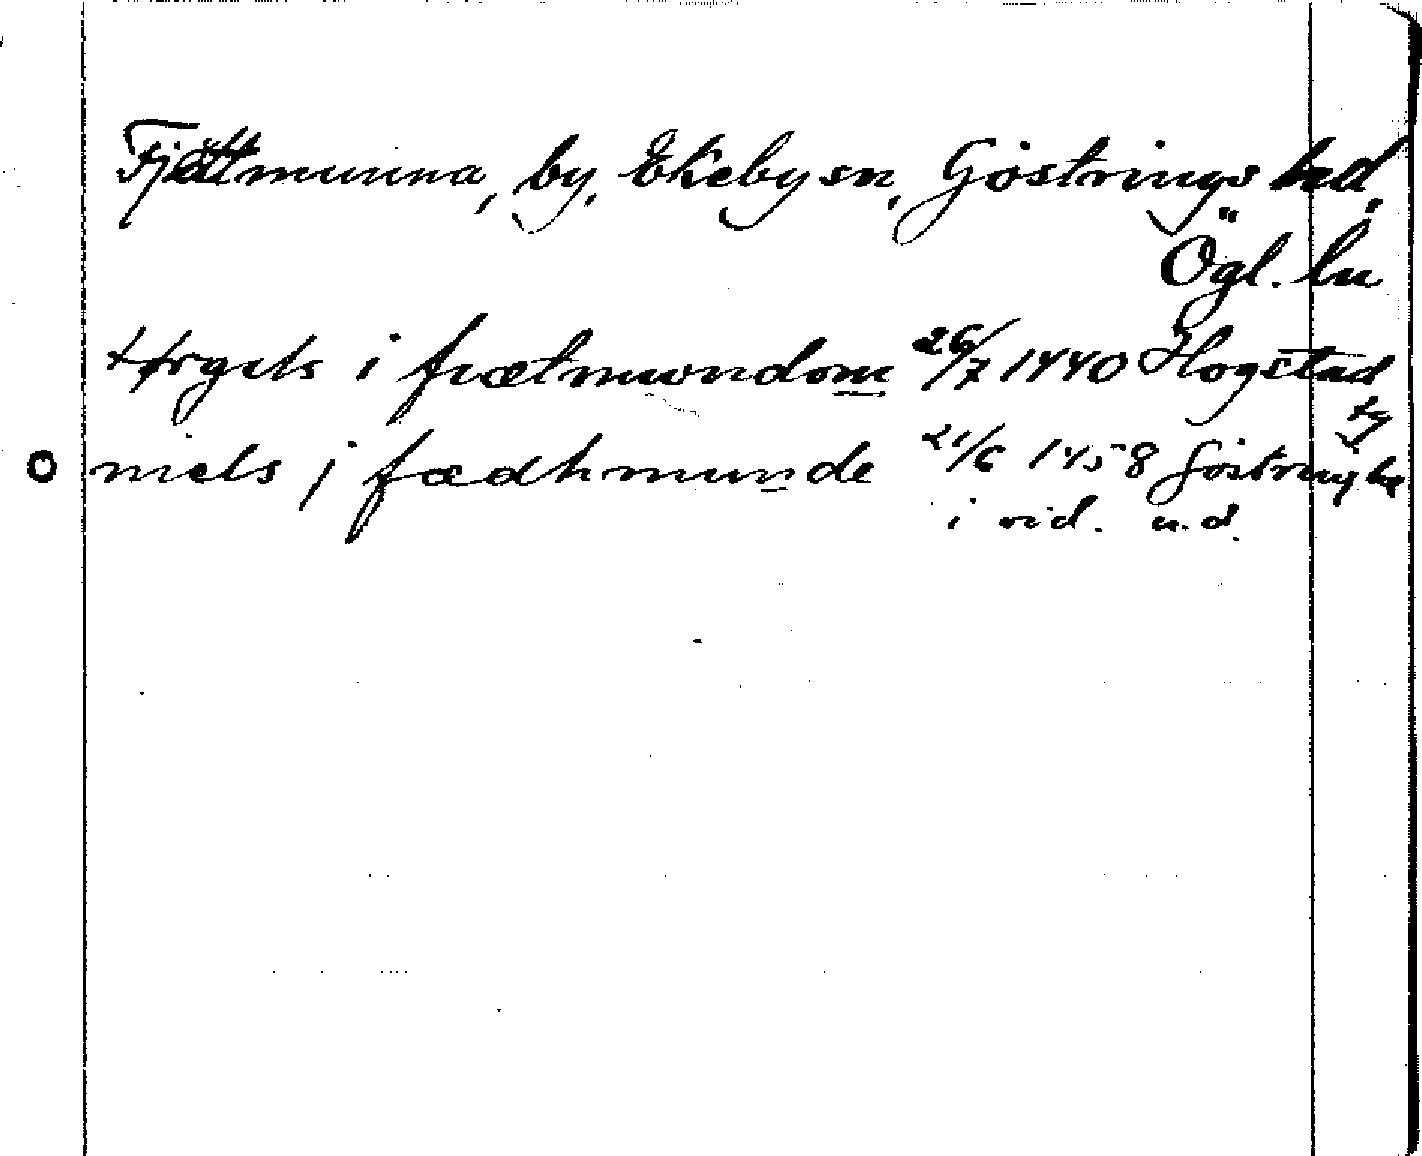 Fjättmunna, by, Ekeby sn, Göstrings hd,
Ögl. ln
thrgils i fiætmwndom 26/7 1440 Hogstad
niels j fædhmunde 21/6 1458 Göstring
i vid. u.d.